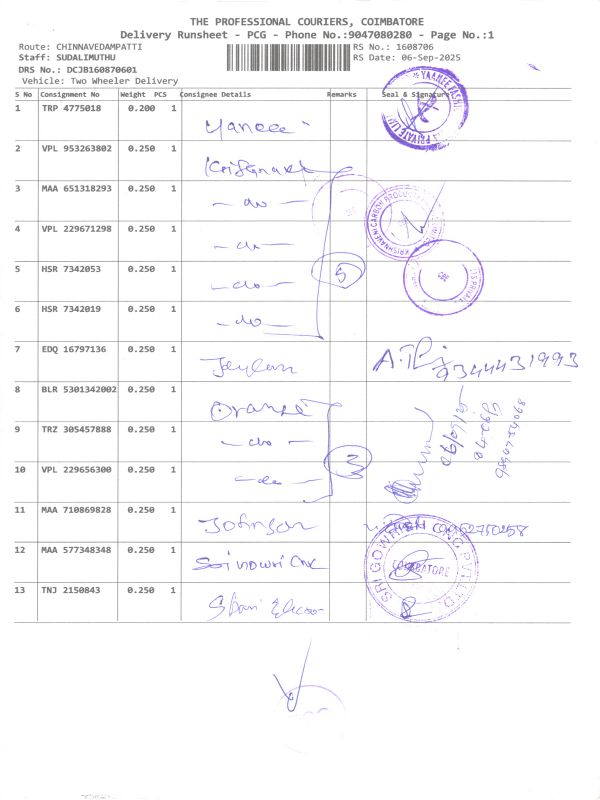 THE PROFESSIONAL COURIERS, COIMBATORE
Delivery Runsheet - PCG - Phone No.:9047080280 - Page No.:1
Route: CHINNAVEDAMPATTI RS No.: 1608706
Staff: SUDALIMUTHU RS Date: 06-Sep-2025
DRS No.: DCJB160870601
Vehicle: Two Wheeler Delivery
S No Consignment No Weight PCS Consignee Details Remarks Seal & Signature
1 TRP 4775018 0.200 1 Yanee
2 VPL 953263802 0.250 1
3 MAA 651318293 0.250 1 - do -
4 VPL 229671298 0.250 1 - do -
5 HSR 7342053 0.250 1 - do - 5
6 HSR 7342019 0.250 1 - do -
7 EDQ 16797136 0.250 1 9344431993
8 BLR 5301342002 0.250 1 Orange
9 TRZ 305457888 0.250 1 - do - 3
10 VPL 229656300 0.250 1 - do -
11 MAA 710869828 0.250 1 Johnson
12 MAA 577348348 0.250 1
13 TNJ 2150843 0.250 1
06/09/25
SRI GOWRISH CNC PVT LTD.
COIMBATORE